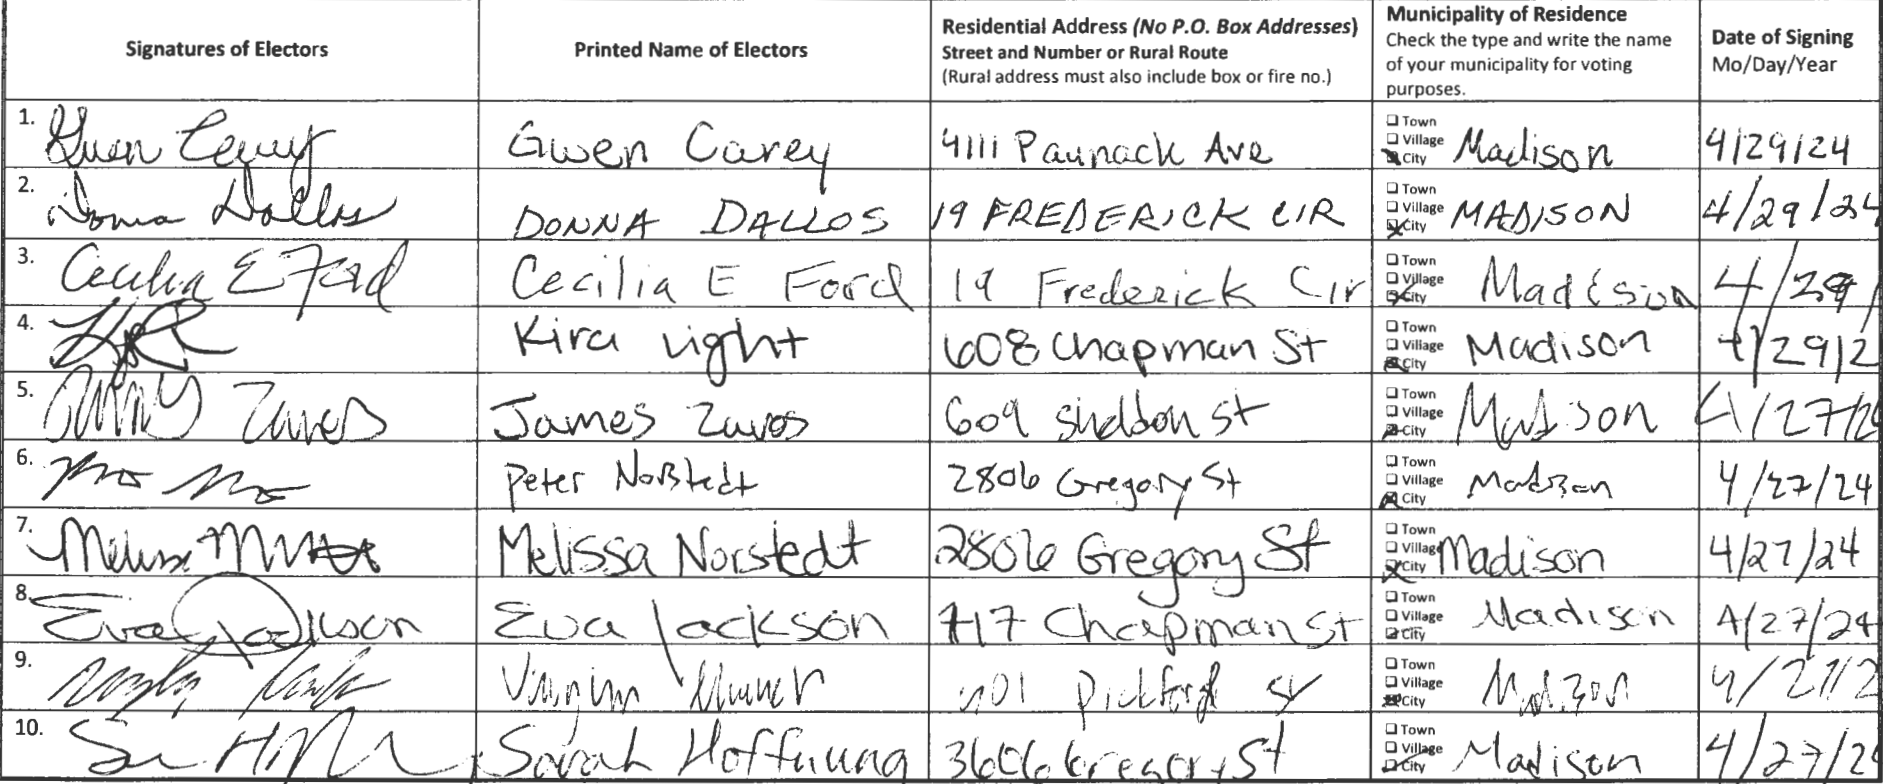 Signatures of Electors
Printed Name of Electors
Residential Address (No P.O. Box Addresses)
Street and Number or Rural Route
(Rural address must also include box or fire no.)
Municipality of Residence
Check the type and write the name
of your municipality for voting
purposes.
Date of Signing
Mo/Day/Year
1. Gwen Carey Gwen Carey 4111 Paunack Ave Town Village City Madison 4/29/24
2. Donna Dallos DONNA DALLOS 19 FREDERICK CIR Town Village City MADISON 4/29/24
3. Cecilia E Ford Cecilia E Ford 19 Frederick Cir Town Village City Madison 4/29/
4. Kira Light 608 Chapman St Town Village City Madison 4/29/2
5. Zavos James Zavos 609 Sheldon St Town Village City Madison 4/27/2
6. Peter Norstedt 2806 Gregory St Town Village City Madison 4/27/24
7. Melissa Melissa Norstedt 2806 Gregory St Town Village City Madison 4/27/24
8. Eva Jackson Eva Jackson 717 Chapman St Town Village City Madison 4/27/24
9. St Town Village City Madison 4/27/2
10. Sarah Hoffnung 3606 Gregory St Town Village City Madison 4/27/2